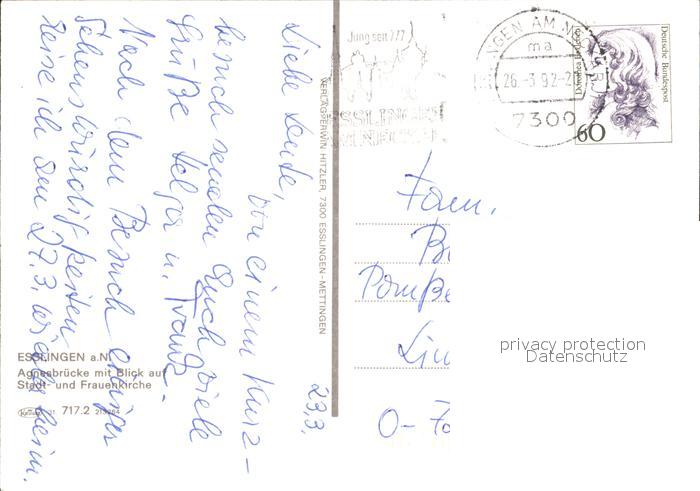 23.3.
Liebe Leute,
von einem Kurz-
besuch senden Euch viele
Grüße Helga u. Franz.
Nach dem Besuch einiger
Sehenswürdigkeiten
reise ich am 27.3. wieder heim.
ESSLINGEN a.N.
Agnesbrücke mit Blick auf
Stadt- und Frauenkirche
717.2
VERLAG ERWIN HITZLER, 7300 ESSLINGEN-METTINGEN
Jung seit 777
ESSLINGEN
AM NECKAR
NGEN AM N
ma
26.-3.92-2
7300
Deutsche Bundespost
60
Fam.
B
Pomße
Lin
O-
privacy protection
Datenschutz